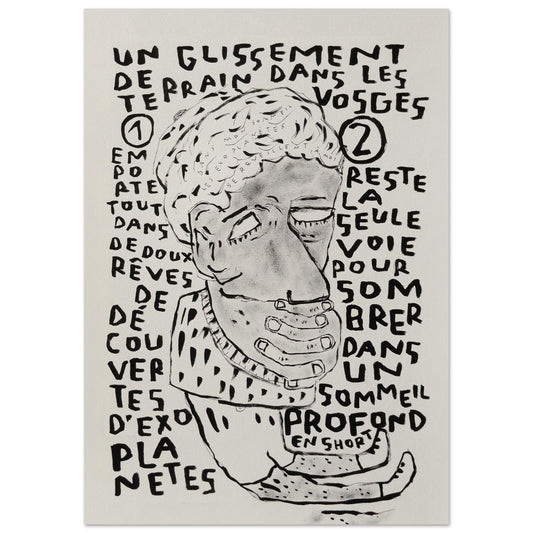 UN GLISSEMENT
DE
TERRAIN DANS LES
VOSGES
1
EM
PO
RTE
TOUT
DANS
DE DOUX
RÊVES
DE
DÉ
COU
VER
TES
D'EXO
PLA
NETES
2
RESTE
LA
SEULE
VOIE
POUR
SOM
BRER
DANS
UN
SOMMEIL
PROFOND
EN SHORT